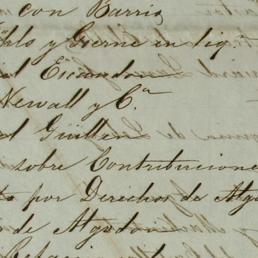 con Barrio
hls y Gerne en liqn
el Escandon
Newall y Ca
el Guillen
sobre Contribucione
to por Derechos de Algo
o de Algodon